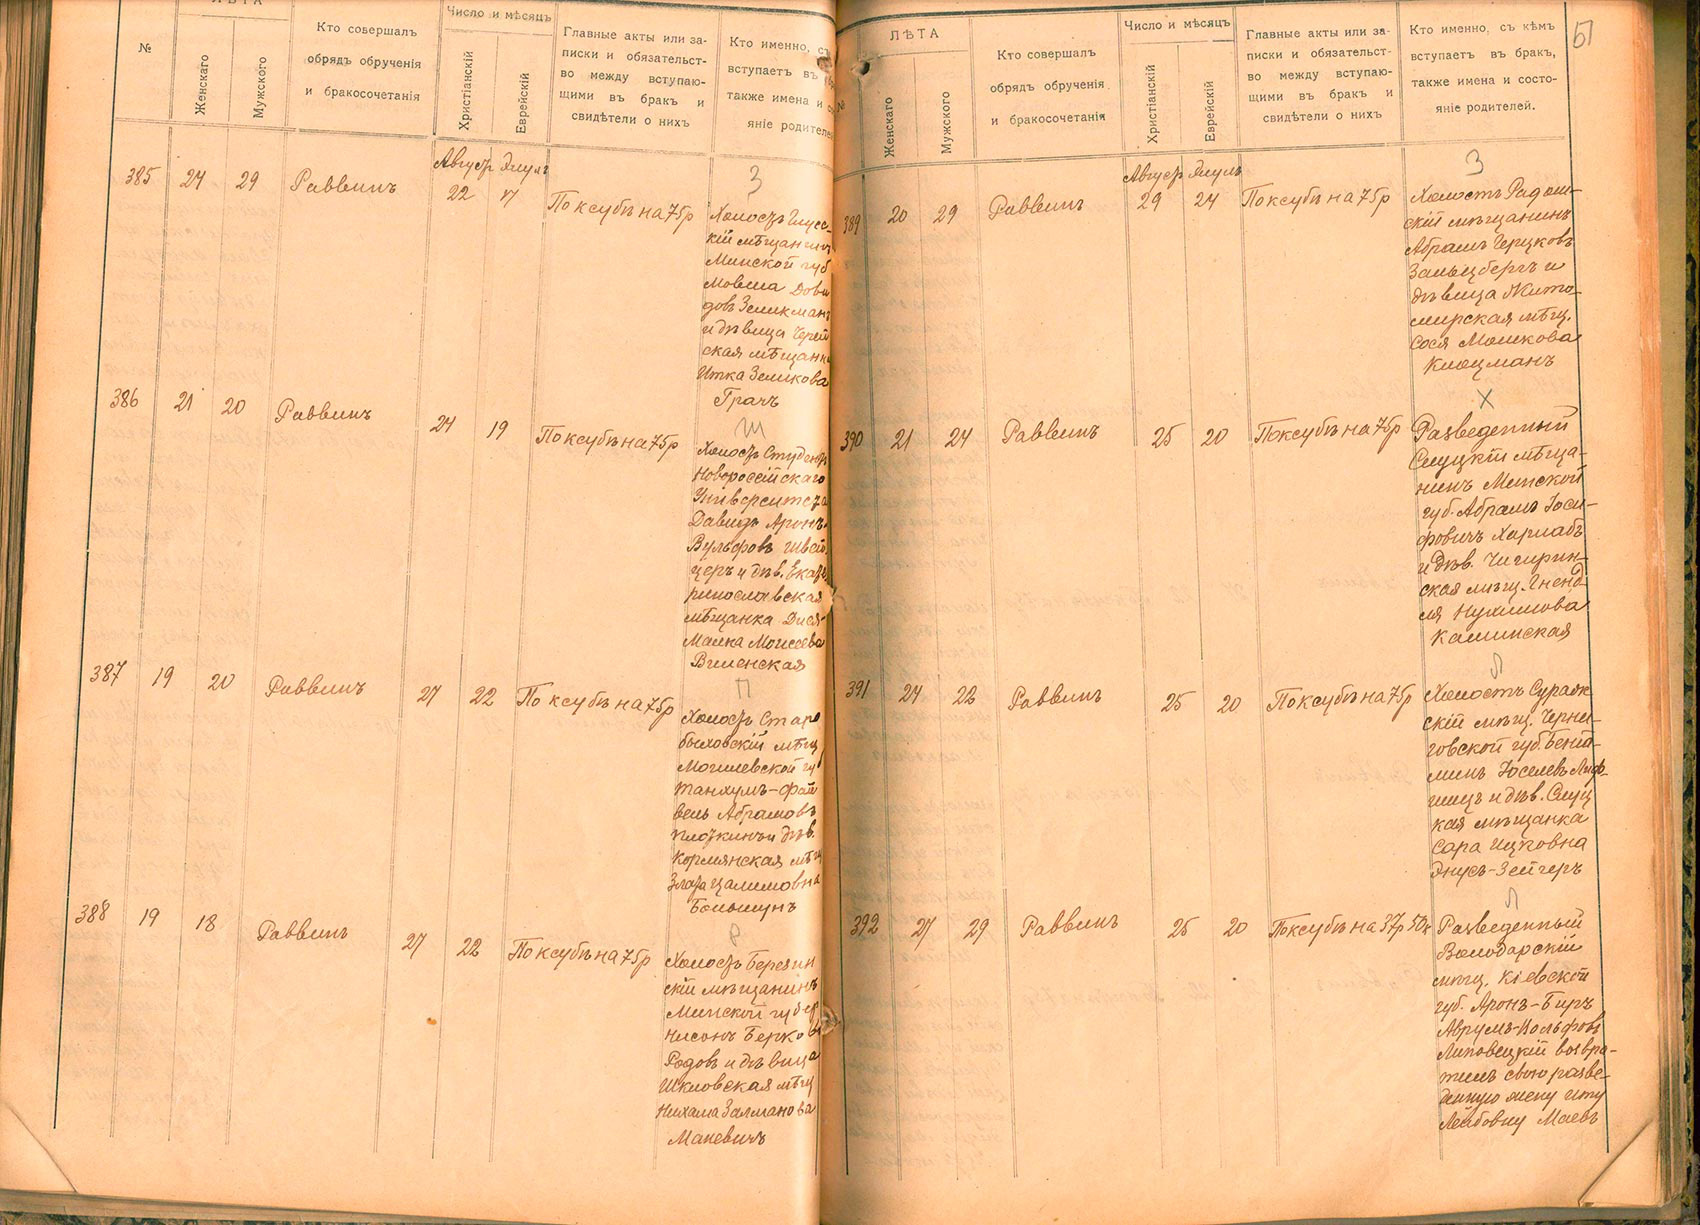 ЛѢТА
№
Женскаго
Мужского
Кто совершалъ
обрядъ обрученія
и бракосочетанія
Число и мѣсяцъ
Христіанскій
Еврейскій
Главные акты или за-
писки и обязательст-
во между вступаю-
щими въ бракъ и
свидѣтели о нихъ
Кто именно, съ
вступаетъ въ
также имена и
яніе родителе
385 24 29 Раввинъ
Август Элулъ
22 17
По ксубѣ на 75р
З
Холостъ Глусс-
кій мѣщанинъ
Минской губ
Мовша Дови
довъ Зеликманъ
и дѣвица Черей
ская мѣщанк
Итка Зеликова
Грачъ
386 21 20 Раввинъ 24 19 По ксубѣ на 75р
Ш
Холостъ Студентъ
Новороссійскаго
Университета
Давидъ Аронъ-
Вульфовъ Швей
церъ и дѣв. Екате
ринославская
мѣщанка Дися-
Малка Моисеева
Виленская
387 19 20 Раввинъ 27 22 По ксубѣ на 75р
П
Холостъ Старо
быховскій мѣщ
Могилевской гу
Танхумъ-Фай
вель Абрамовъ
Плоткинъ и дѣв.
Кормянская мѣщ
Злата Цалимовна
Большунъ
388 19 18 Раввинъ 27 22 По ксубѣ на 75р
Р
Холостъ Березин
скій мѣщанинъ
Минской губер
Нисонъ Берковъ
Родовъ и дѣвица
Шкловская мѣщ
Нихама Залманова
Маневичъ
51
№
ЛѢТА
Женскаго
Мужского
Кто совершалъ
обрядъ обрученія
и бракосочетанія
Число и мѣсяцъ
Христіанскій
Еврейскій
Главные акты или за-
писки и обязательст-
во между вступаю-
щими въ бракъ и
свидѣтели о нихъ
Кто именно, съ кѣмъ
вступаетъ въ бракъ,
также имена и состо-
яніе родителей.
389 20 29 Раввинъ
Август Элулъ
29 24
По ксубѣ на 75р
З
Холостъ Радом-
скій мѣщанинъ
Абрамъ Герцковъ
Зальцбергъ и
дѣвица Жито-
мирская мѣщ.
Сося Мошкова
Клоцманъ
390 21 24 Раввинъ 25 20 По ксубѣ на 75р
Х
Разведенный
Слуцкій мѣща-
нинъ Минской
губ. Абрамъ Іоси-
фовичъ Харлабъ
и дѣв. Чигирин-
ская мѣщ. Гненд-
ля Нухимова
Калинская
391 24 22 Раввинъ 25 20 По ксубѣ на 75р
Л
Холостъ Сураж
скій мѣщ. Черни-
говской губ. Бенiа-
минъ Іоселевъ Лиф-
шицъ и дѣв. Слуц
кая мѣщанка
Сара Ицковна
Эпусъ-Зейгеръ
392 27 29 Раввинъ 25 20 По ксубѣ на 37р 50к
Л
Разведенный
Володарскій
мѣщ. Кіевской
губ. Аронъ-Биръ
Аврумъ-Вольфовъ
Липовецкій возвра-
тилъ свою разве-
денную жену Иту
Лейбовну Маевъ